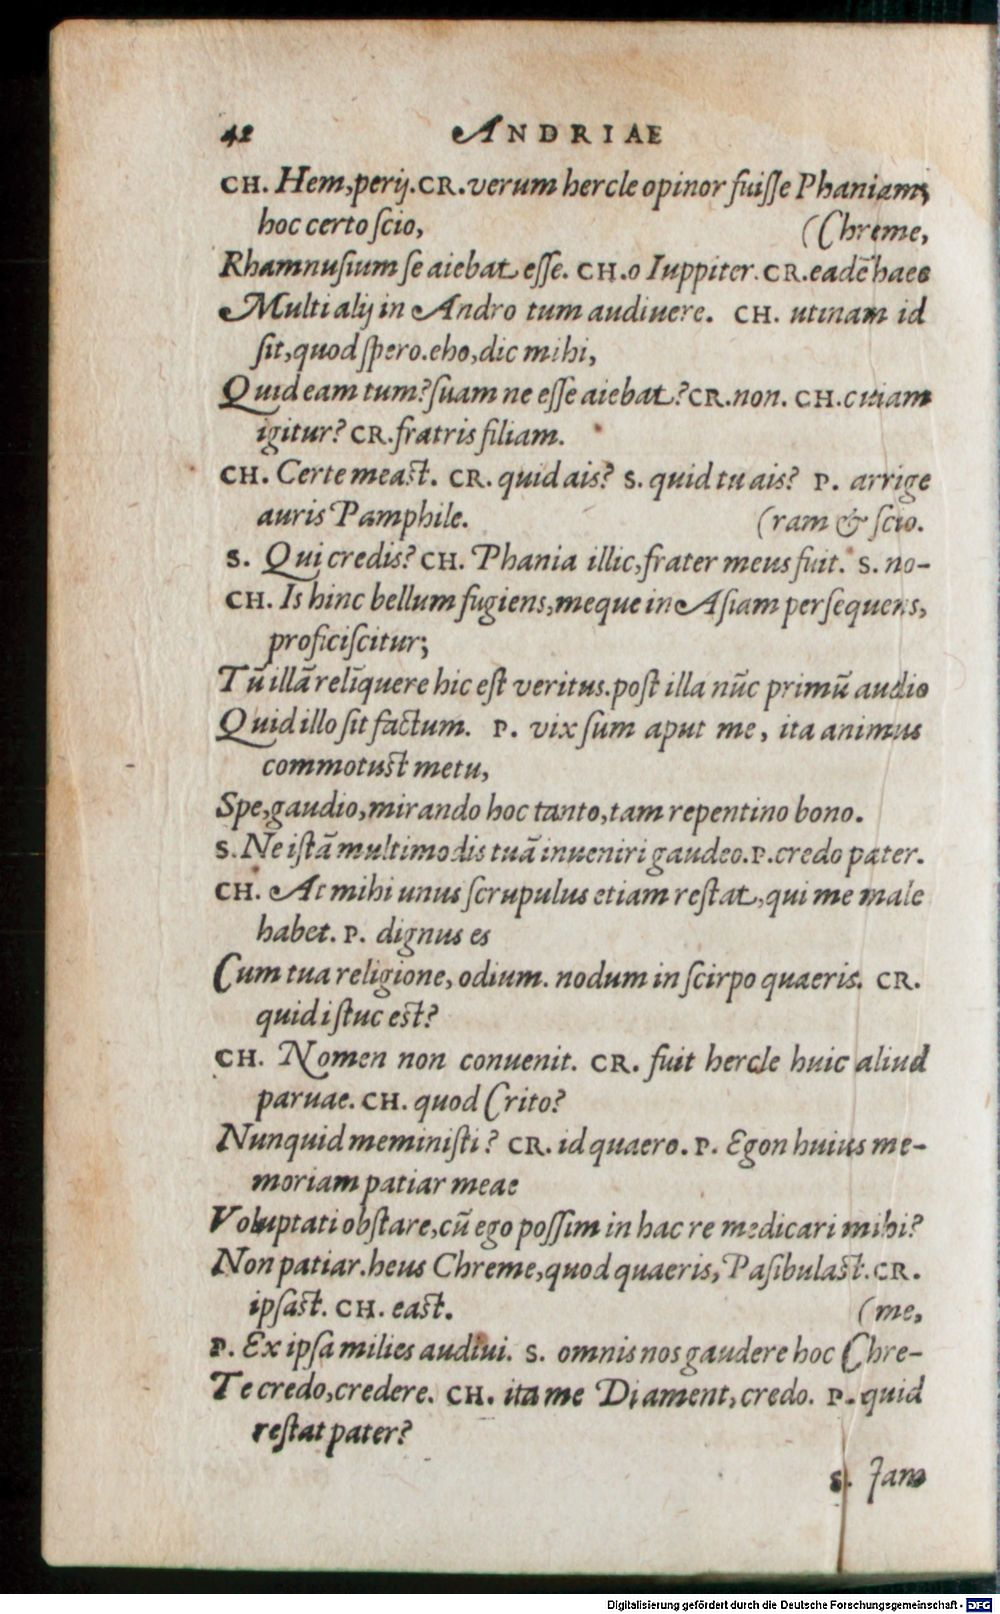 42 ANDRIAE
CH. Hem, perij. CR. verum hercle opinor fuisse Phaniam;
hoc certo scio, (Chreme,
Rhamnusium se aiebat esse. CH. o Iuppiter. CR. eadē haec
Multi alij in Andro tum audiuere. CH. utinam id
sit, quod spero. eho, dic mihi,
Quid eam tum? suam ne esse aiebat? CR. non. CH. cuiam
igitur? CR. fratris filiam.
CH. Certe meast. CR. quid ais? S. quid tu ais? P. arrige
auris Pamphile. (ram & scio.
S. Qui credis? CH. Phania illic, frater meus fuit. S. no-
CH. Is hinc bellum fugiens, meque in Asiam persequens,
proficiscitur;
Tū illā relīquere hic est veritus. post illa nūc primū audio
Quid illo sit factum. P. vix sum aput me, ita animus
commotust metu,
Spe, gaudio, mirando hoc tanto, tam repentino bono.
S. Ne istā multimodis tuā inueniri gaudeo. P. credo pater.
CH. At mihi unus scrupulus etiam restat, qui me male
habet. P. dignus es
Cum tua religione, odium. nodum in scirpo quaeris. CR.
quid istuc est?
CH. Nomen non conuenit. CR. fuit hercle huic aliud
paruae. CH. quod Crito?
Nunquid meministi? CR. id quaero. P. Egon huius me-
moriam patiar meae
Voluptati obstare, cū ego possim in hac re medicari mihi?
Non patiar. heus Chreme, quod quaeris, Pasibulast. CR.
ipsast. CH. east. (me,
P. Ex ipsa milies audiui. S. omnis nos gaudere hoc Chre-
Te credo, credere. CH. ita me Di ament, credo. P. quid
restat pater?
S. Jam
Digitalisierung gefördert durch die Deutsche Forschungsgemeinschaft - DFG